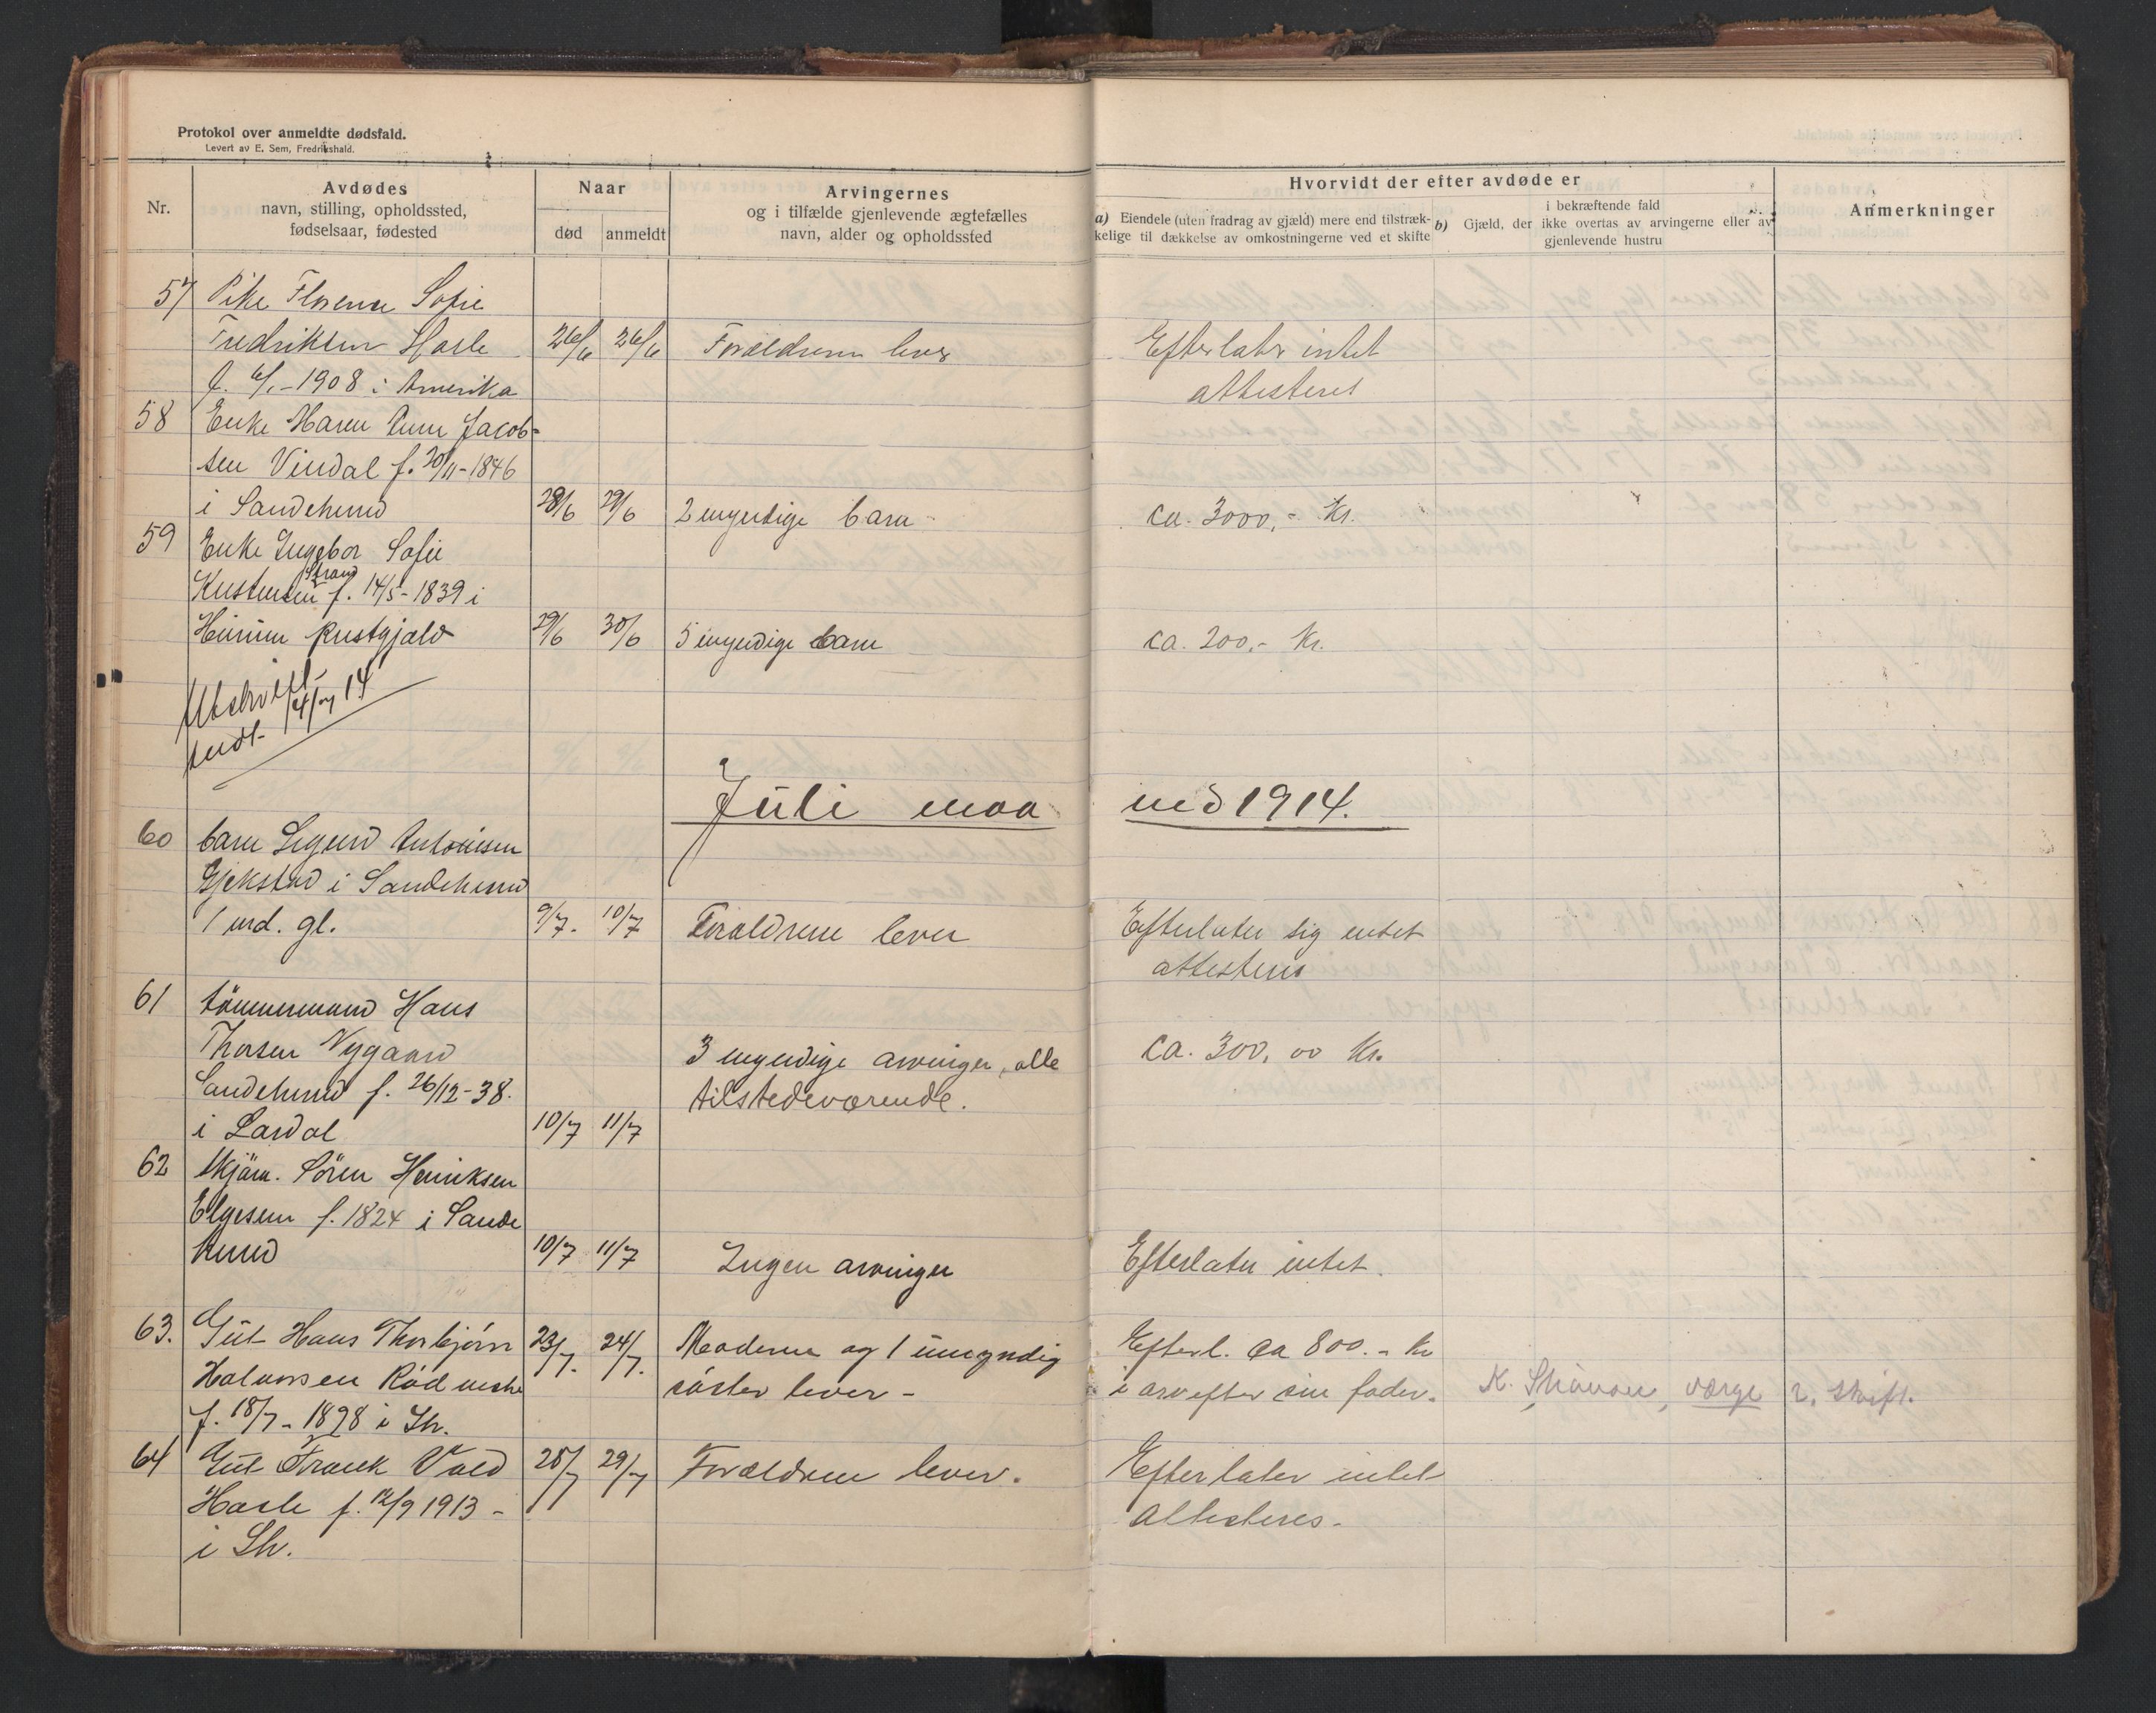 Protokol over anmeldte dødsfald.
Levert av E. Sem, Fredrikshald.
Nr.
Avdødes
navn, stilling, opholdssted,
fødselsaar, fødested
Naar
død
anmeldt
Arvingernes
og i tilfælde gjenlevende ægtefælles
navn, alder og opholdssted
Hvorvidt der efter avdøde er
a) Eiendele (uten fradrag av gjæld) mere end tilstræk-
kelige til dækkelse av omkostningerne ved et skifte
b) Gjæld, der
i bekræftende fald
ikke overtas av arvingerne eller av
gjenlevende hustru
Anmerkninger
57 Pike Florence Sofie
Fredriksen Hasle 26/6 26/6 Forældrene lever Efterlater intet
f. 6/1-1908 i Amerika attesteres
58 Enke Maren Anne Jacob-
sen Vindal f. 20/11-1846
i Sandeherred 28/6 29/6 2 myndige barn - ca. 3000,- Kr.
59 Enke Ingebor Sofie
Strand
Kristensen f. 14/5-1839 i
Hurum Prestgjæld 29/6 30/6 5 myndige barn ca. 200,- Kr.
Utskrift
sendt 14/7 14
Juli maa ned 1914.
60 barn Sigurd Antonisen
Gjekstad i Sandeherred
1 md. gl. 9/7. 10/7 Forældrene lever Efterlater sig intet
attesteres
61 tömmermand Hans
Thorsen Nygaard 3 myndige arvinger, alle ca. 300,00 Kr.
Sandeherred f. 26/12-38. tilstedeværende.
i Lardal 10/7 11/7
62 Skjöm. Sören Henriksen
Elgesem f. 1824 i Sande
herred 10/7 11/7 Ingen arvinger Efterlater intet.
63. Gut Hans Thorbjørn 23/7. 24/7. Moderen og 1 umyndig Efterl. ca 800.- Kr
Halvorsen Rød søster lever - i arv efter sin fader. K. , værge 2. skift.
f. 18/7-1898 i Sh.
64 Gut Franck Vald 28/7 29/7 Forældrene lever. Efterlater intet
Hasle f. 12/9 1913 - Attesteres -
i Sh.